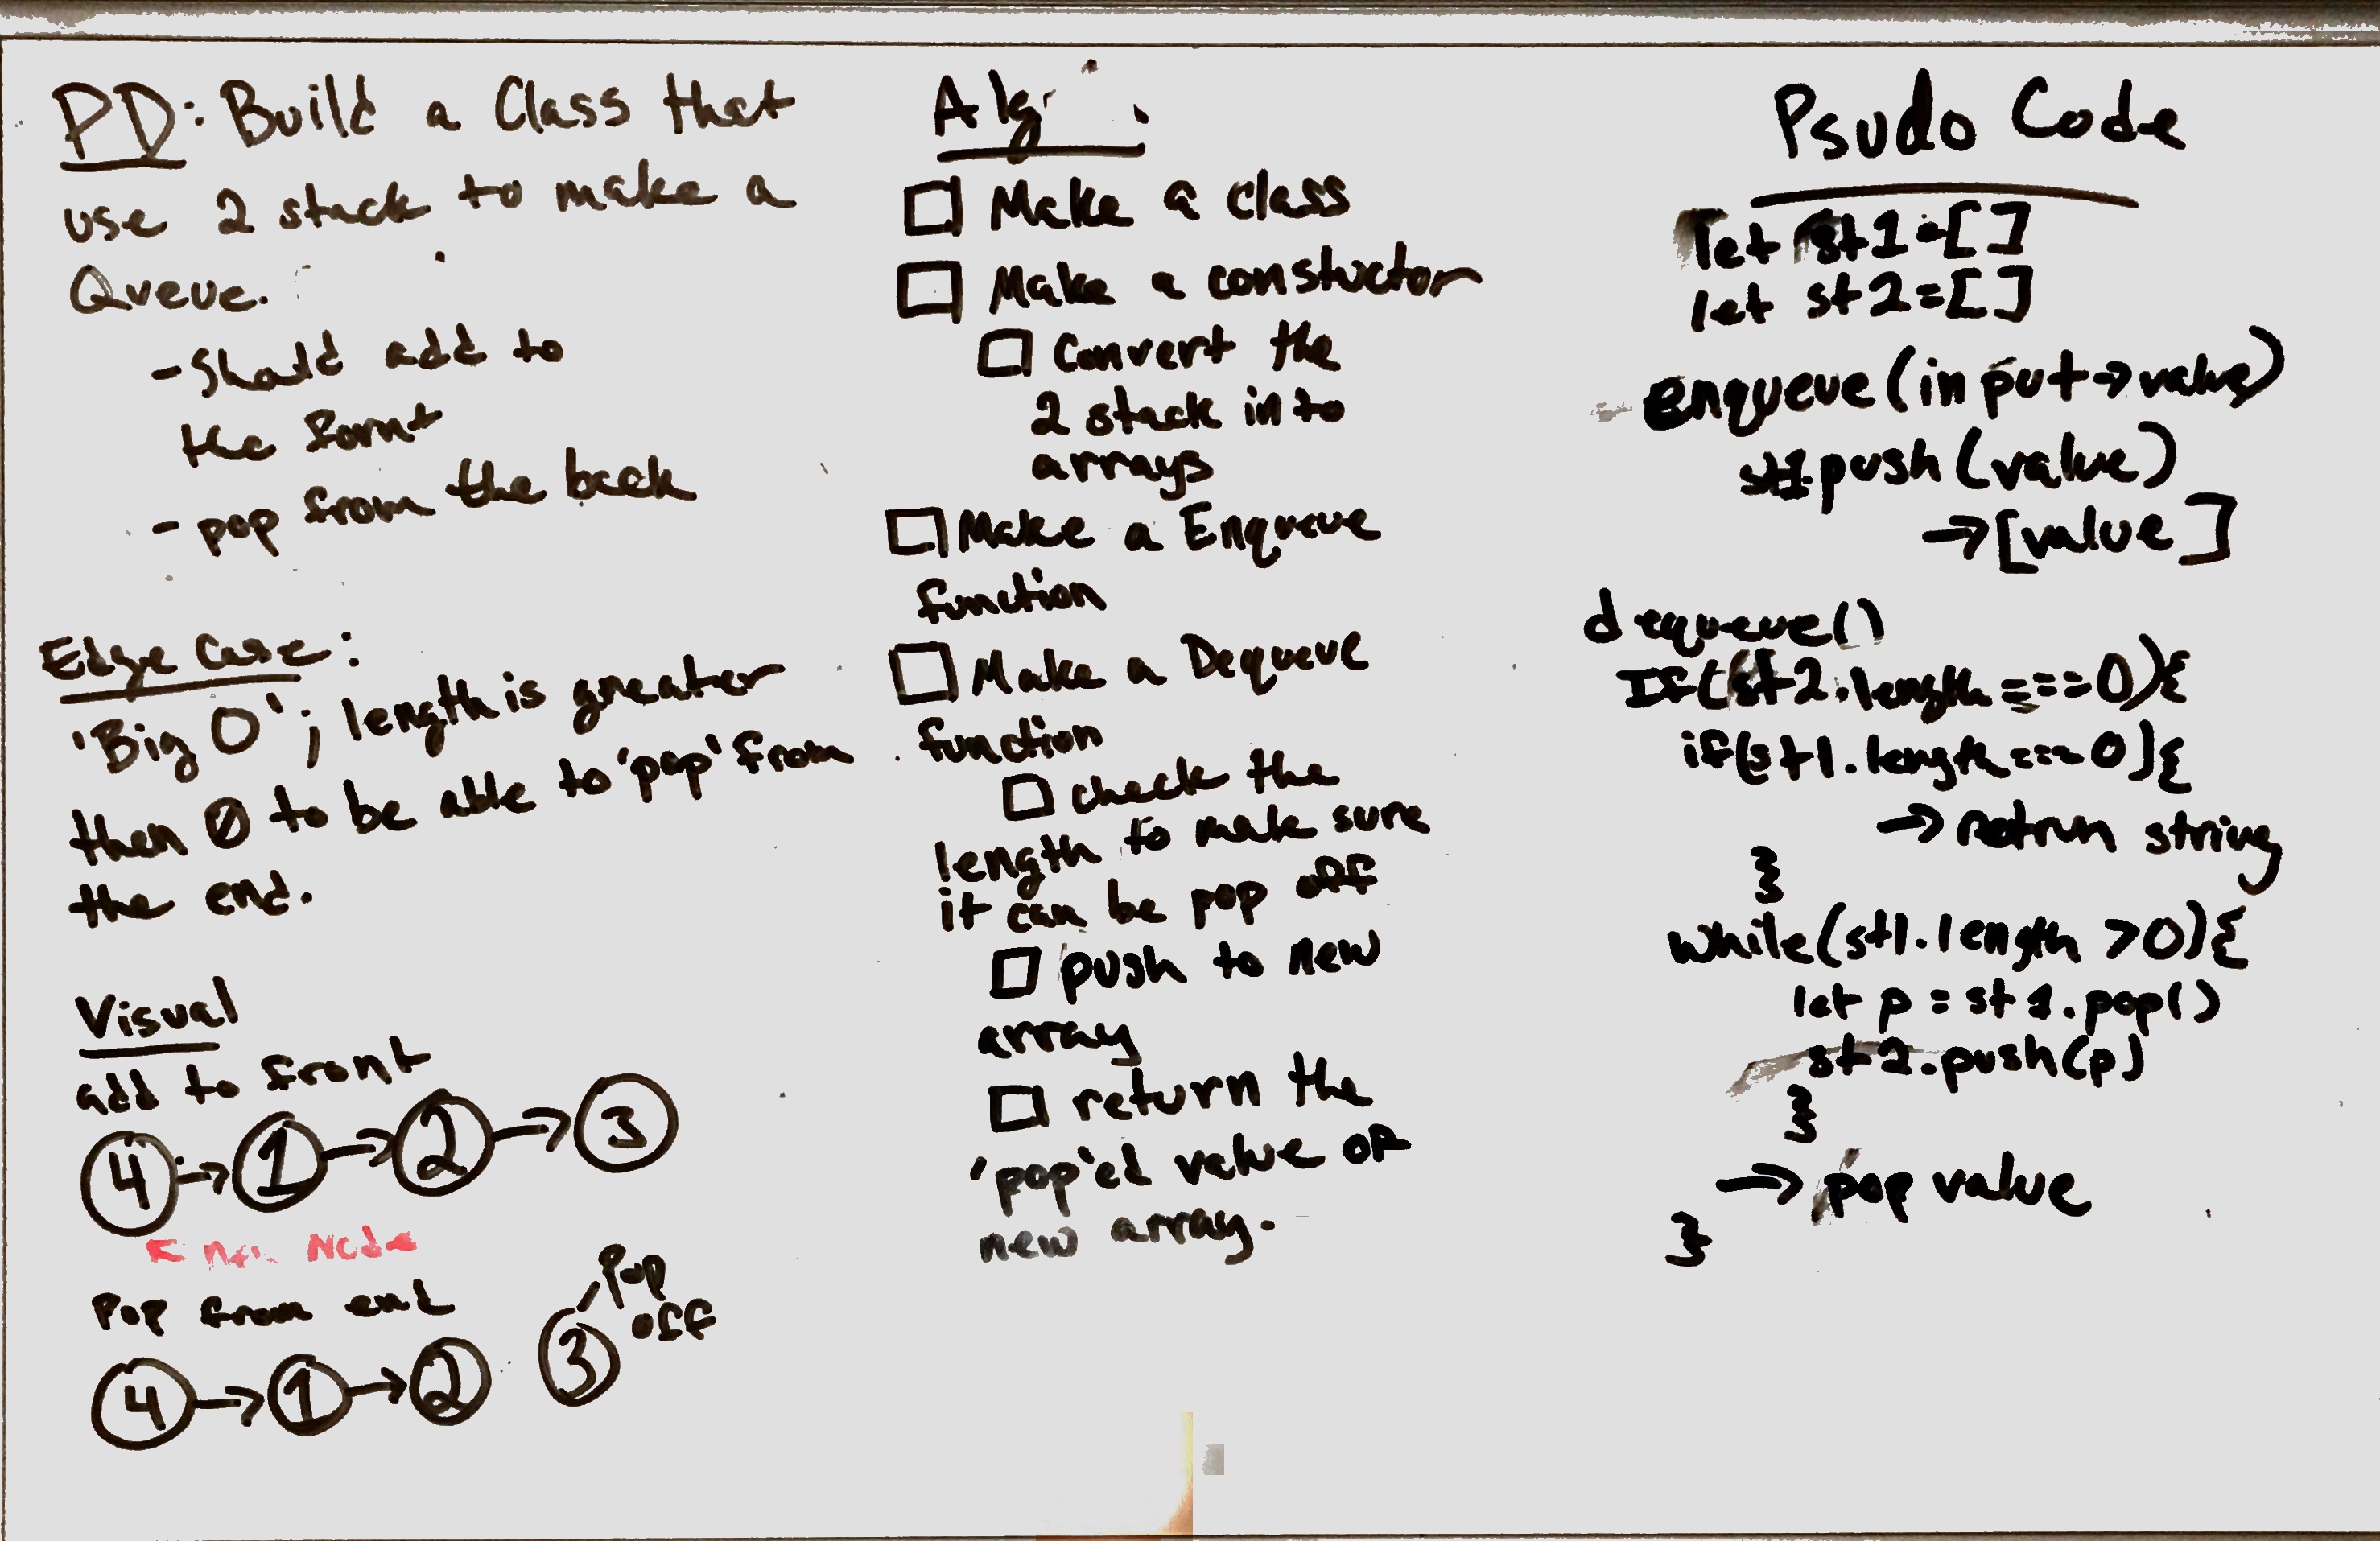 PD: Build a Class that
use 2 stack to make a
Queue.
- Should add to
the fornt
- pop from the back
Edge Case:
'Big O'; length is greater
then 0 to be able to 'pop' from
the end.
Visual
add to front
4 → 1 → 2 → 3
Node
Pop from end
Pop
off
4 → 1 → 2 3
Alg:
Make a class
Make a constuctor
Convert the
2 stack in to
arrays
Make a Enqueue
function
Make a Dequeue
function
check the
length to make sure
it can be pop off
push to new
array
return the
'pop'ed value of
new array.
Psudo Code
let st1=[]
let st2=[]
enqueue(input→value)
st1.push(value)
→[value]
dequeue()
If(st2.length===0){
if(st1.length===0){
→ retrun string
}
while(st1.length >0){
let p = st1.pop()
st2.push(p)
}
→ pop value
}